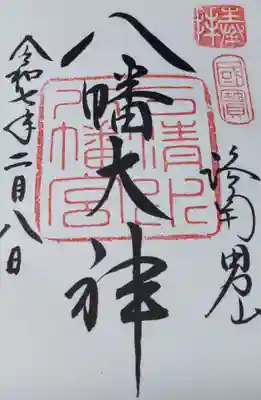 奉拝
国寳
洛南男山
八幡大神
石清水
八幡宮
令和七年二月八日